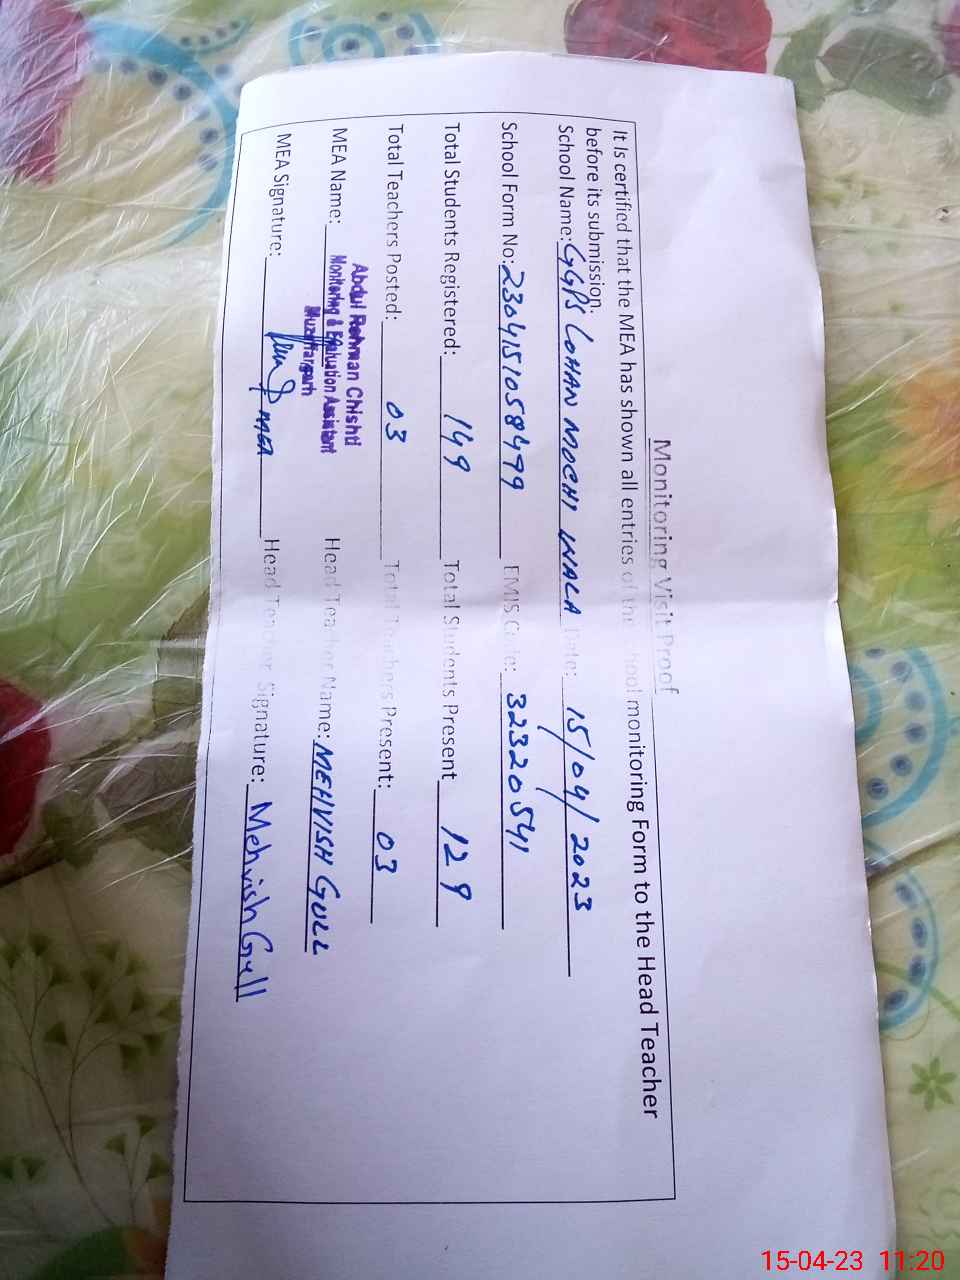 Monitoring Visit Proof
It Is certified that the MEA has shown all entries of the school monitoring Form to the Head Teacher
before its submission.
School Name: GGPS LOHAN MOCHI WALA Date: 15/04/2023
School Form No: 2304151058499 EMIS Code: 32320541
Total Students Registered: 149 Total Students Present 129
Total Teachers Posted: 03 Total Teachers Present: 03
Abdul Rehman Chishti
Monitoring & Evaluation Assistant
Muzaffargarh
MEA Name: Head Teacher Name: MEHVISH GULL
MEA Signature: MEA Head Teacher Signature: Mehvish Gull
15-04-23 11:20